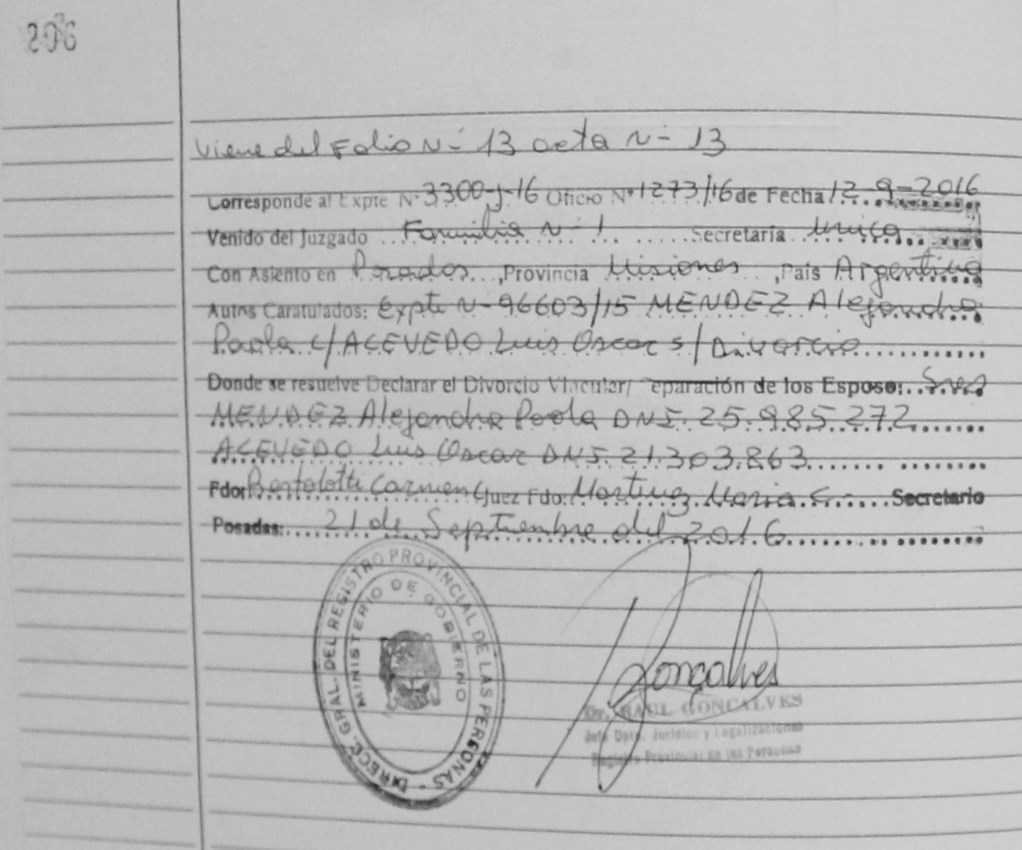 206
Viene del Folio N- 13 acta N- 13
Corresponde al Expte N° 3300-J-16 Oficio N° 1273/16 de Fecha 12-9-2016
Venido del Juzgado Familia N- 1 Secretaria Unica
Con Asiento en Posadas, Provincia Misiones, País Argentina
Autos Caratulados: Expte N- 96603/15 MENDEZ Alejandra
Paola c/ ACEVEDO Luis Oscar s/ Divorcio
Donde se resuelve Declarar el Divorcio Vincular/ eparación de los Esposo: Sres
MENDEZ Alejandra Paola DNI. 25.985.272
ACEVEDO Luis Oscar DNI. 21.303.863
Fdo: Bertolotti Carmen Juez Fdo: Martinez Maria Secretario
Posadas: 21 de Septiembre del 2016
DIRECC. GRAL. DEL REGISTRO PROVINCIAL DE LAS PERSONAS -
MINISTERIO DE GOBIERNO
Gonçalves
Dr. RAUL GONCALVES
Jefe Dpto. Jurídico y Legalizaciones
Registro Provincial de las Personas